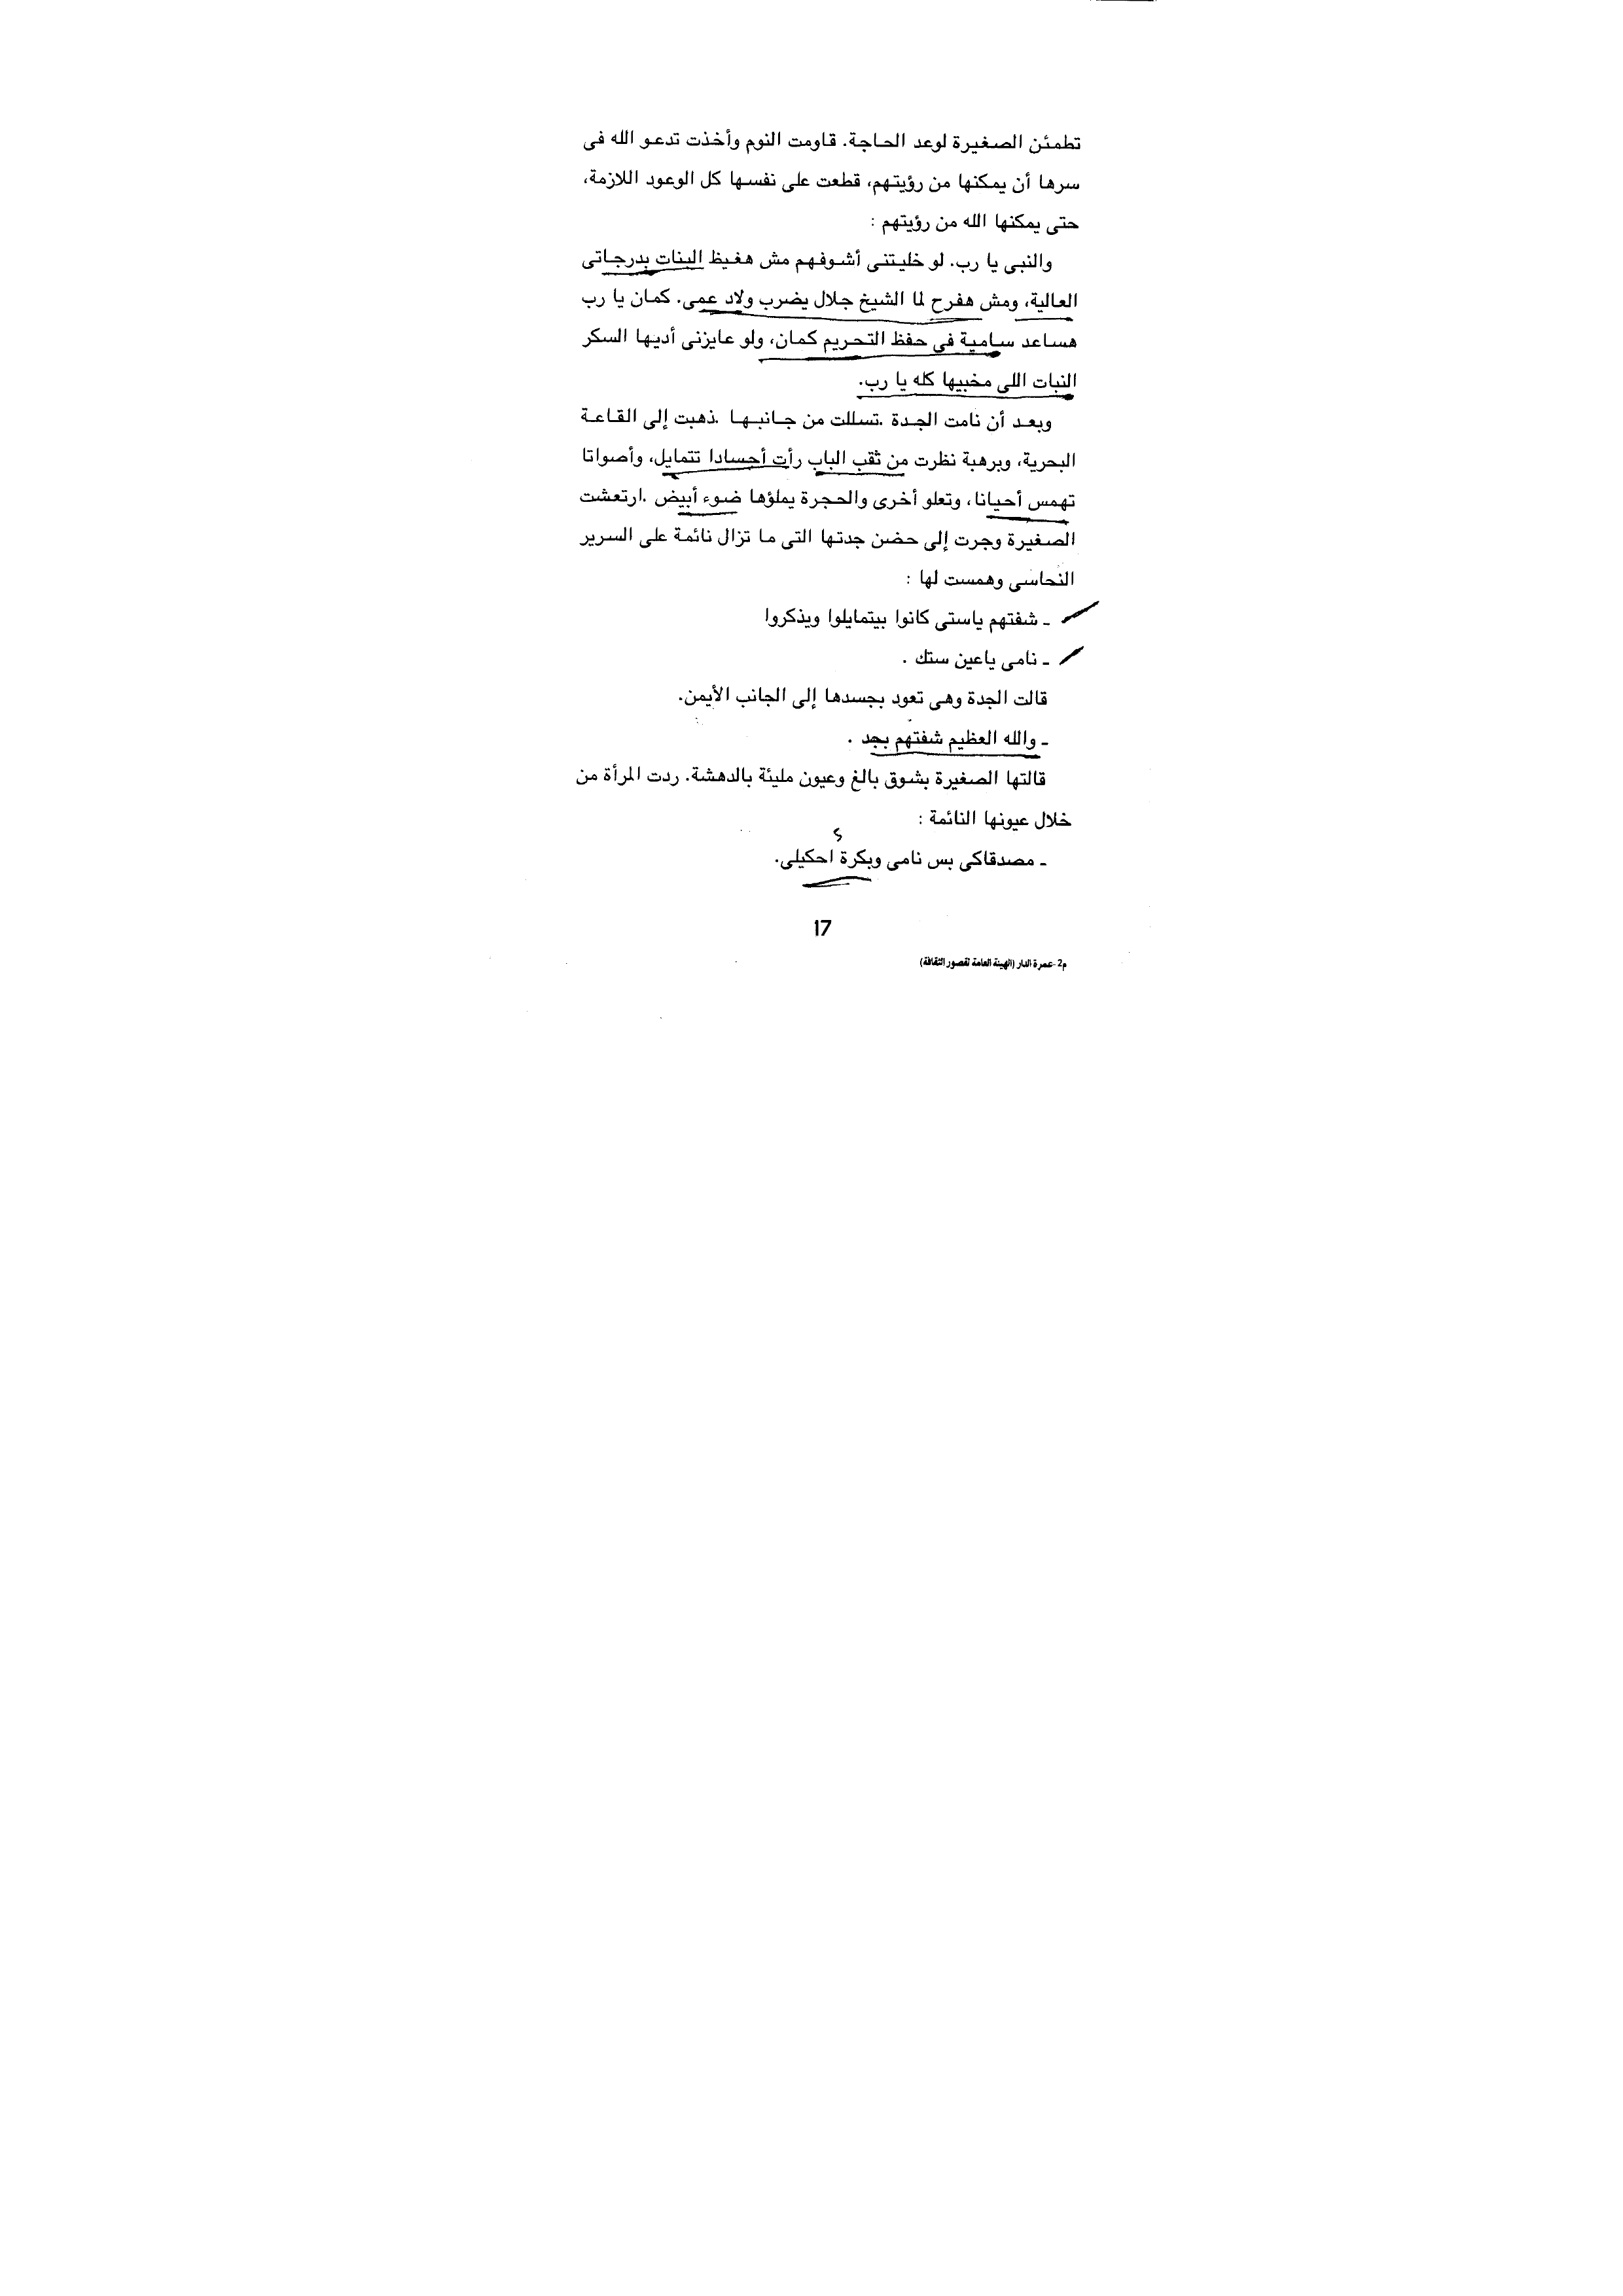 تطمئن الصغيرة لوعد الحاجة. قاومت النوم وأخذت تدعو الله فى
سرها أن يمكنها من رؤيتهم، قطعت على نفسها كل الوعود اللازمة،
حتى يمكنها الله من رؤيتهم :
والنبى يا رب. لو خليتنى أشوفهم مش هغيظ البنات بدرجاتى
العالية، ومش هفرح لما الشيخ جلال يضرب ولاد عمى. كمان يا رب
هساعد سامية فى حفظ التحريم كمان، ولو عايزنى أديها السكر
النبات اللى مخبيها كله يا رب.
وبعد أن نامت الجدة .تسللت من جانبها .ذهبت إلى القاعة
البحرية، وبرهبة نظرت من ثقب الباب رأت أجسادا تتمايل، وأصواتا
تهمس أحيانا، وتعلو أخرى والحجرة يملؤها ضوء أبيض .ارتعشت
الصغيرة وجرت إلى حضن جدتها التى ما تزال نائمة على السرير
النحاسى وهمست لها :
ـ شفتهم ياستى كانوا بيتمايلوا ويذكروا
ـ نامى ياعين ستك .
قالت الجدة وهى تعود بجسدها إلى الجانب الأيمن.
ـ والله العظيم شفتهم بجد .
قالتها الصغيرة بشوق بالغ وعيون مليئة بالدهشة. ردت المرأة من
خلال عيونها النائمة :
ـ مصدقاكى بس نامى وبكرة احكيلى.
17
م2 -عمرة الدار (الهيئة العامة لقصور الثقافة)